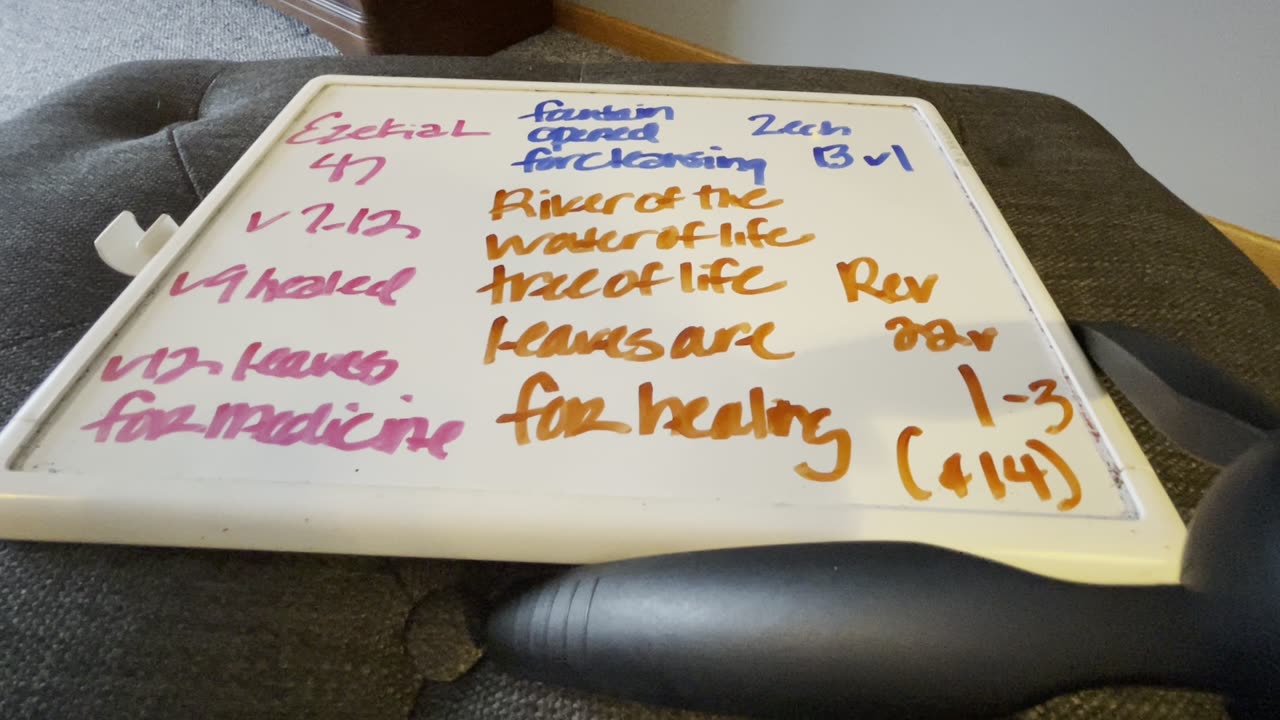 Ezekial
47
v 7-12
v9 healed
v12 leaves
for medicine
fountain
opened
for cleansing
Zech
13 v1
River of the
water of life
tree of life
leaves are
for healing
Rev
22 v
1-3
(+14)